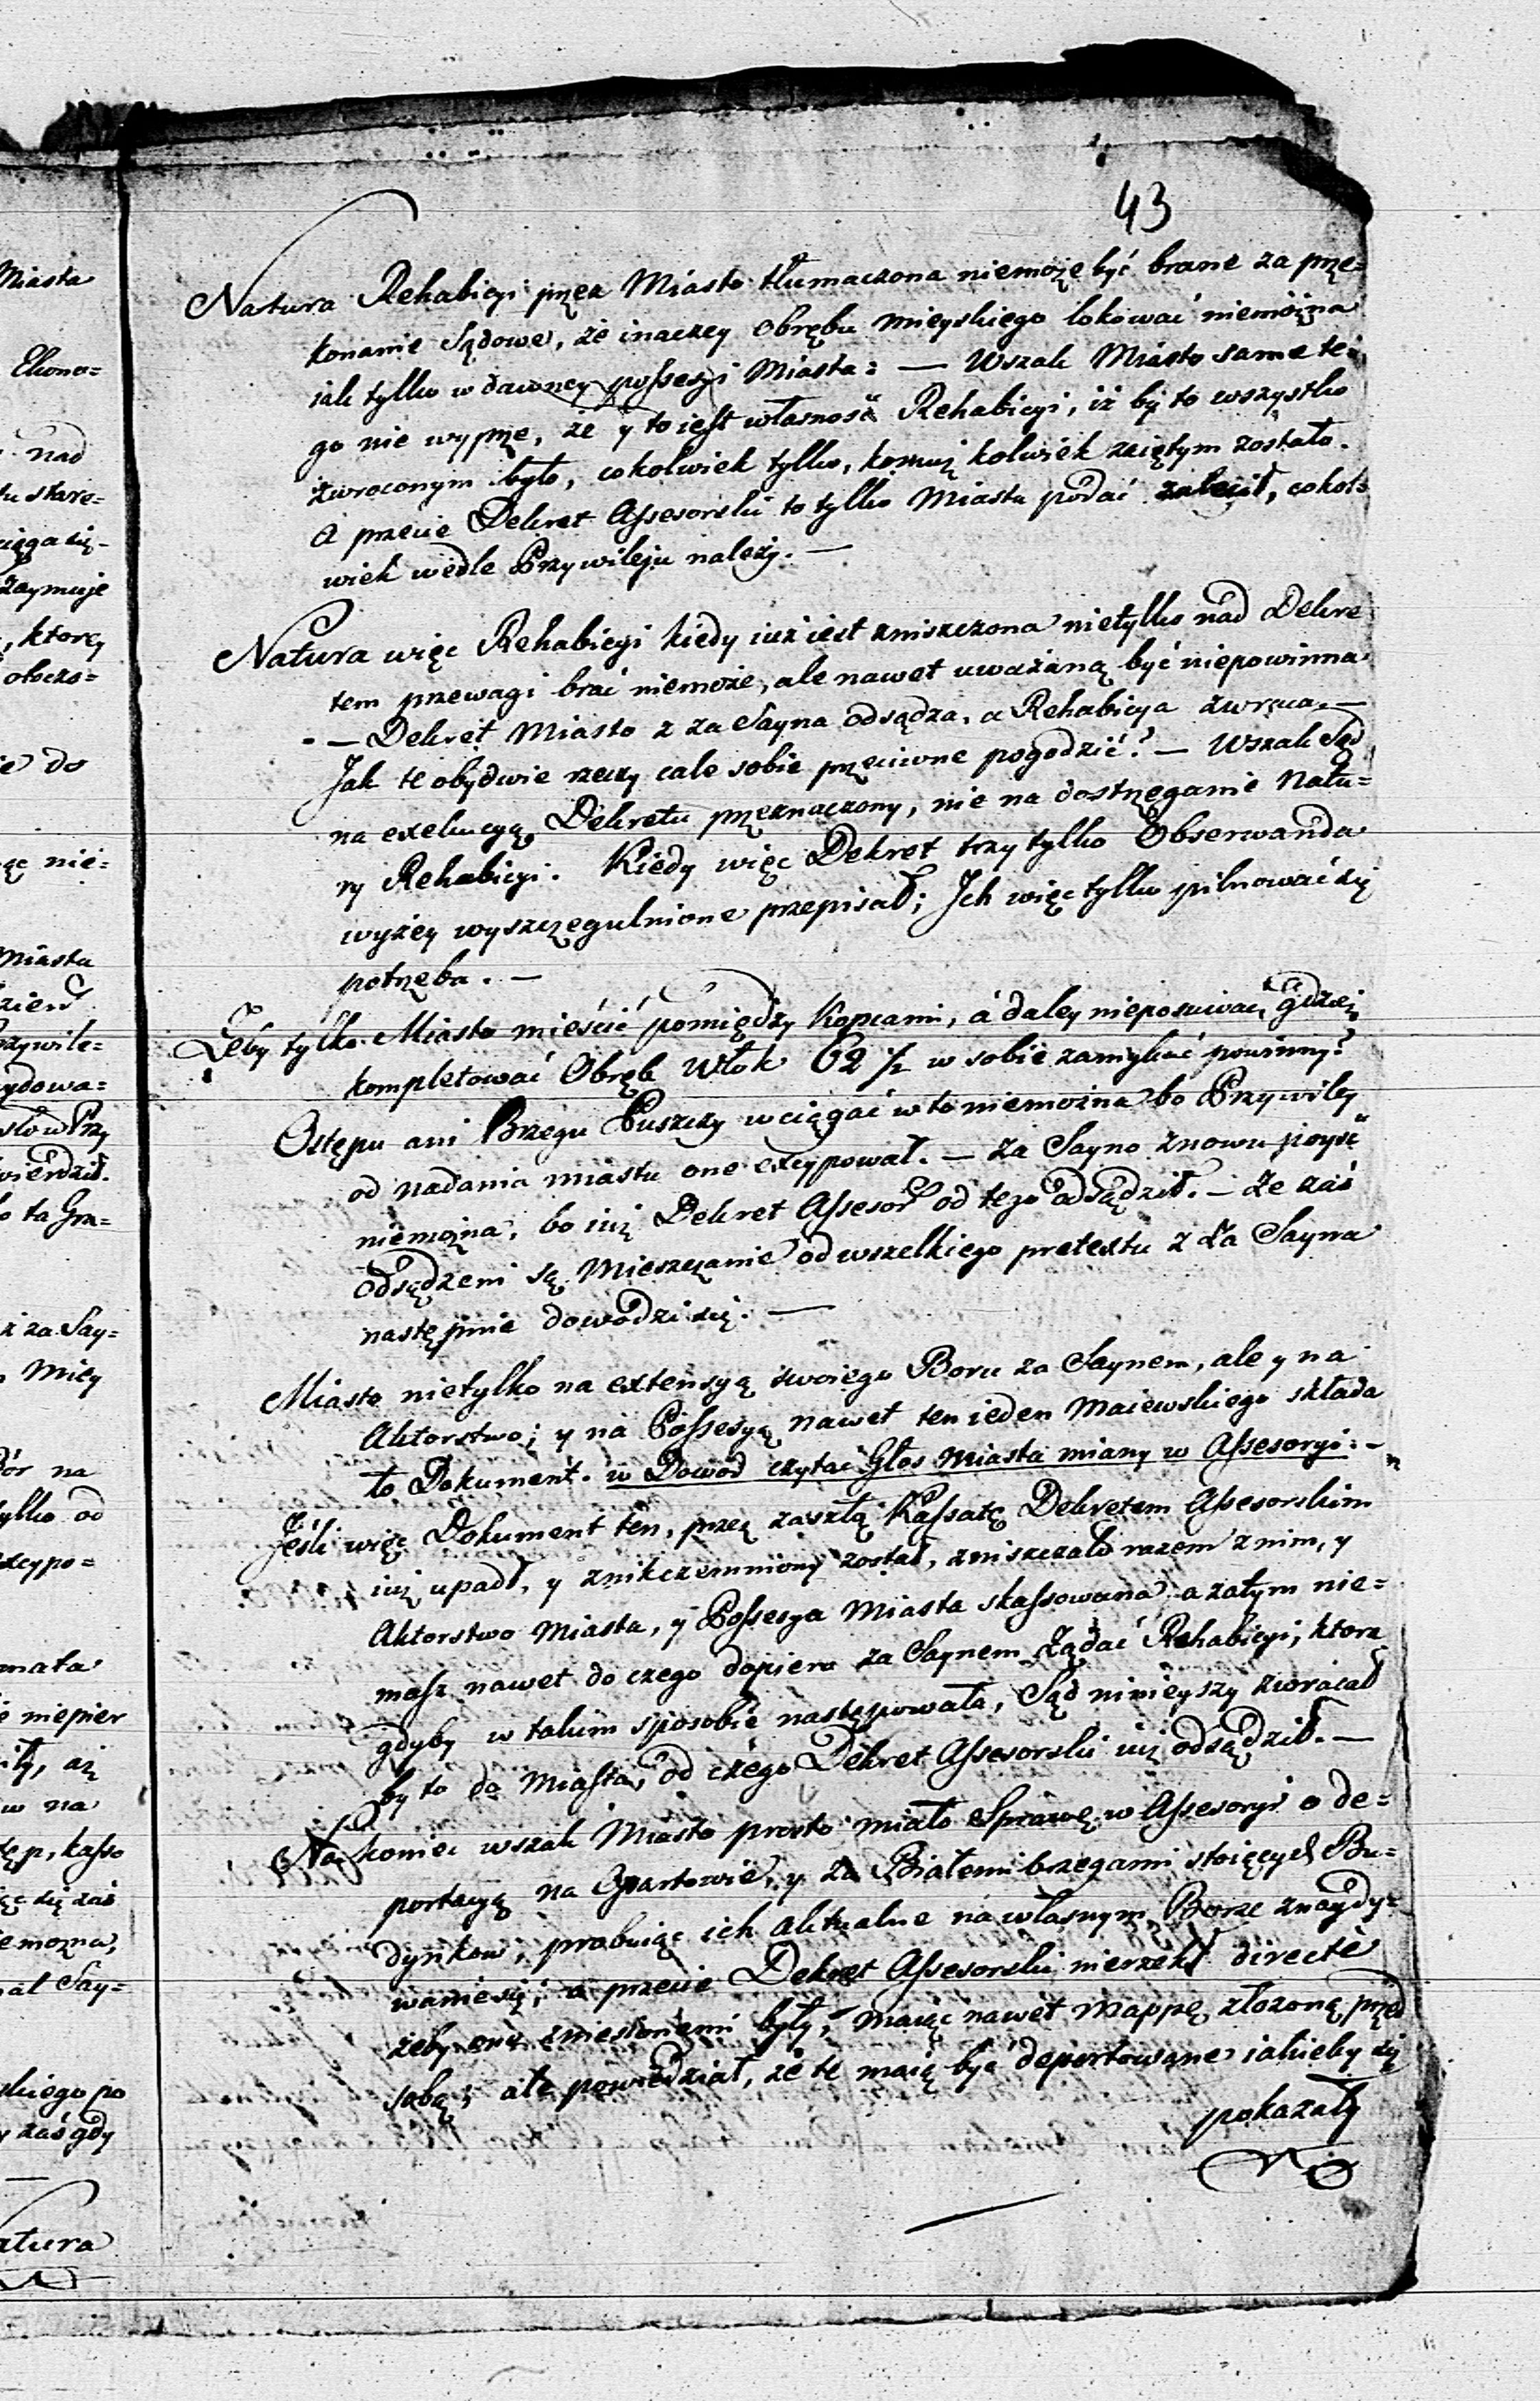 43
Natura Rehabicyi pręz Miasto tłumaczona niemoże być brane za prze=
konanie Sądowe, że inaczey Obrębu mieyskiego lokować niemożna
iak tylko w dawney possesyi Miasta: — Wszak Miasto same te=
go nie wyprze, że y to iest własność Rehabicyi, iż by to wszystko
zwroconym było, cokolwiek tylko, komuż kolwiek zaiętym zostało.
A przecie Dekret Assesorski to tylko Miastu podać zalecił, cokol=
wiek wedle Przywileju należy. —
Natura więc Rehabicyi kiedy iuż iest zniszczona nietylko nad Dekre
tem przewagi brać niemoże, ale nawet uważaną być niepowinna
— Dekret Miasto z za Sayna odsądza, a Rehabicya zwraca. —
Jak te obydwie rzeczy cale sobie przeciwne pogodzić? — Wszak Sąd
na exekucyą Dekretu przeznaczony, nie na dostrzeganie Natu=
ry Rehabicyi. Kiedy więc Dekret trzy tylko Obserwanda
wyżey wyszczegulnione przepisał; Jch więc tylko pilnować się
potrzeba. —
Żeby tylko Miasto mieścić pomiędzy Kopcami, á daley nieposuwać, gdzież
kompletować Obręb Włok 62 ½ w sobie zamykać powinny?
Ostępu ani Brzegu Puszczy wciągać w to niemożna bo Przywiley
od nadania miastu one excypował. — za Sayno znowu poyść
niemożna, bo iuż Dekret Assesor od tego odsądził. — Że zaś
odsądzeni są Mieszczanie od wszelkiego pretextu z Za Sayna
następnie dowodzi się. —
Miasto nietylko na extensyą swoiego Boru za Saynem, ale y na
Aktorstwo; y na Possesyą nawet ten ieden Maiewskiego składa
to Dokument. w Dowod czytać Głos Miasta miany w Assesoryi: —
Jeśli więc Dokument ten, przez zaszłą Kassatę Dekretem Assesorskim
iuż upadł, y znikczemniony został, zniszczało razem z nim, y
Aktorstwo Miasta, y Possesya Miasta skassowana a zatym nie=
masz nawet do czego dopiero za Saynem Żądać Rehabicyi, ktora
gdyby w takim sposobie następowała, Sąd ninieyszy zwracał
by to do Miasta, od czego Dekret Assesorski iuż odsądził. —
Na koniec wszak Miasto prosto miało Sprawę w Assesoryi o de=
portacyą na Gzartowie, y za Białemi brzegami stoiących Bu=
dynkow, probuiąc ich aktualne na własnym Borze znaydy=
wanie się; a przecie Dekret Assesorski nierzekł directè
żeby one zniesionemi były, maiąc nawet Mappę złożoną przed
sobą; ale powiedział, że te maią być deportowane iakieby się
pokazały